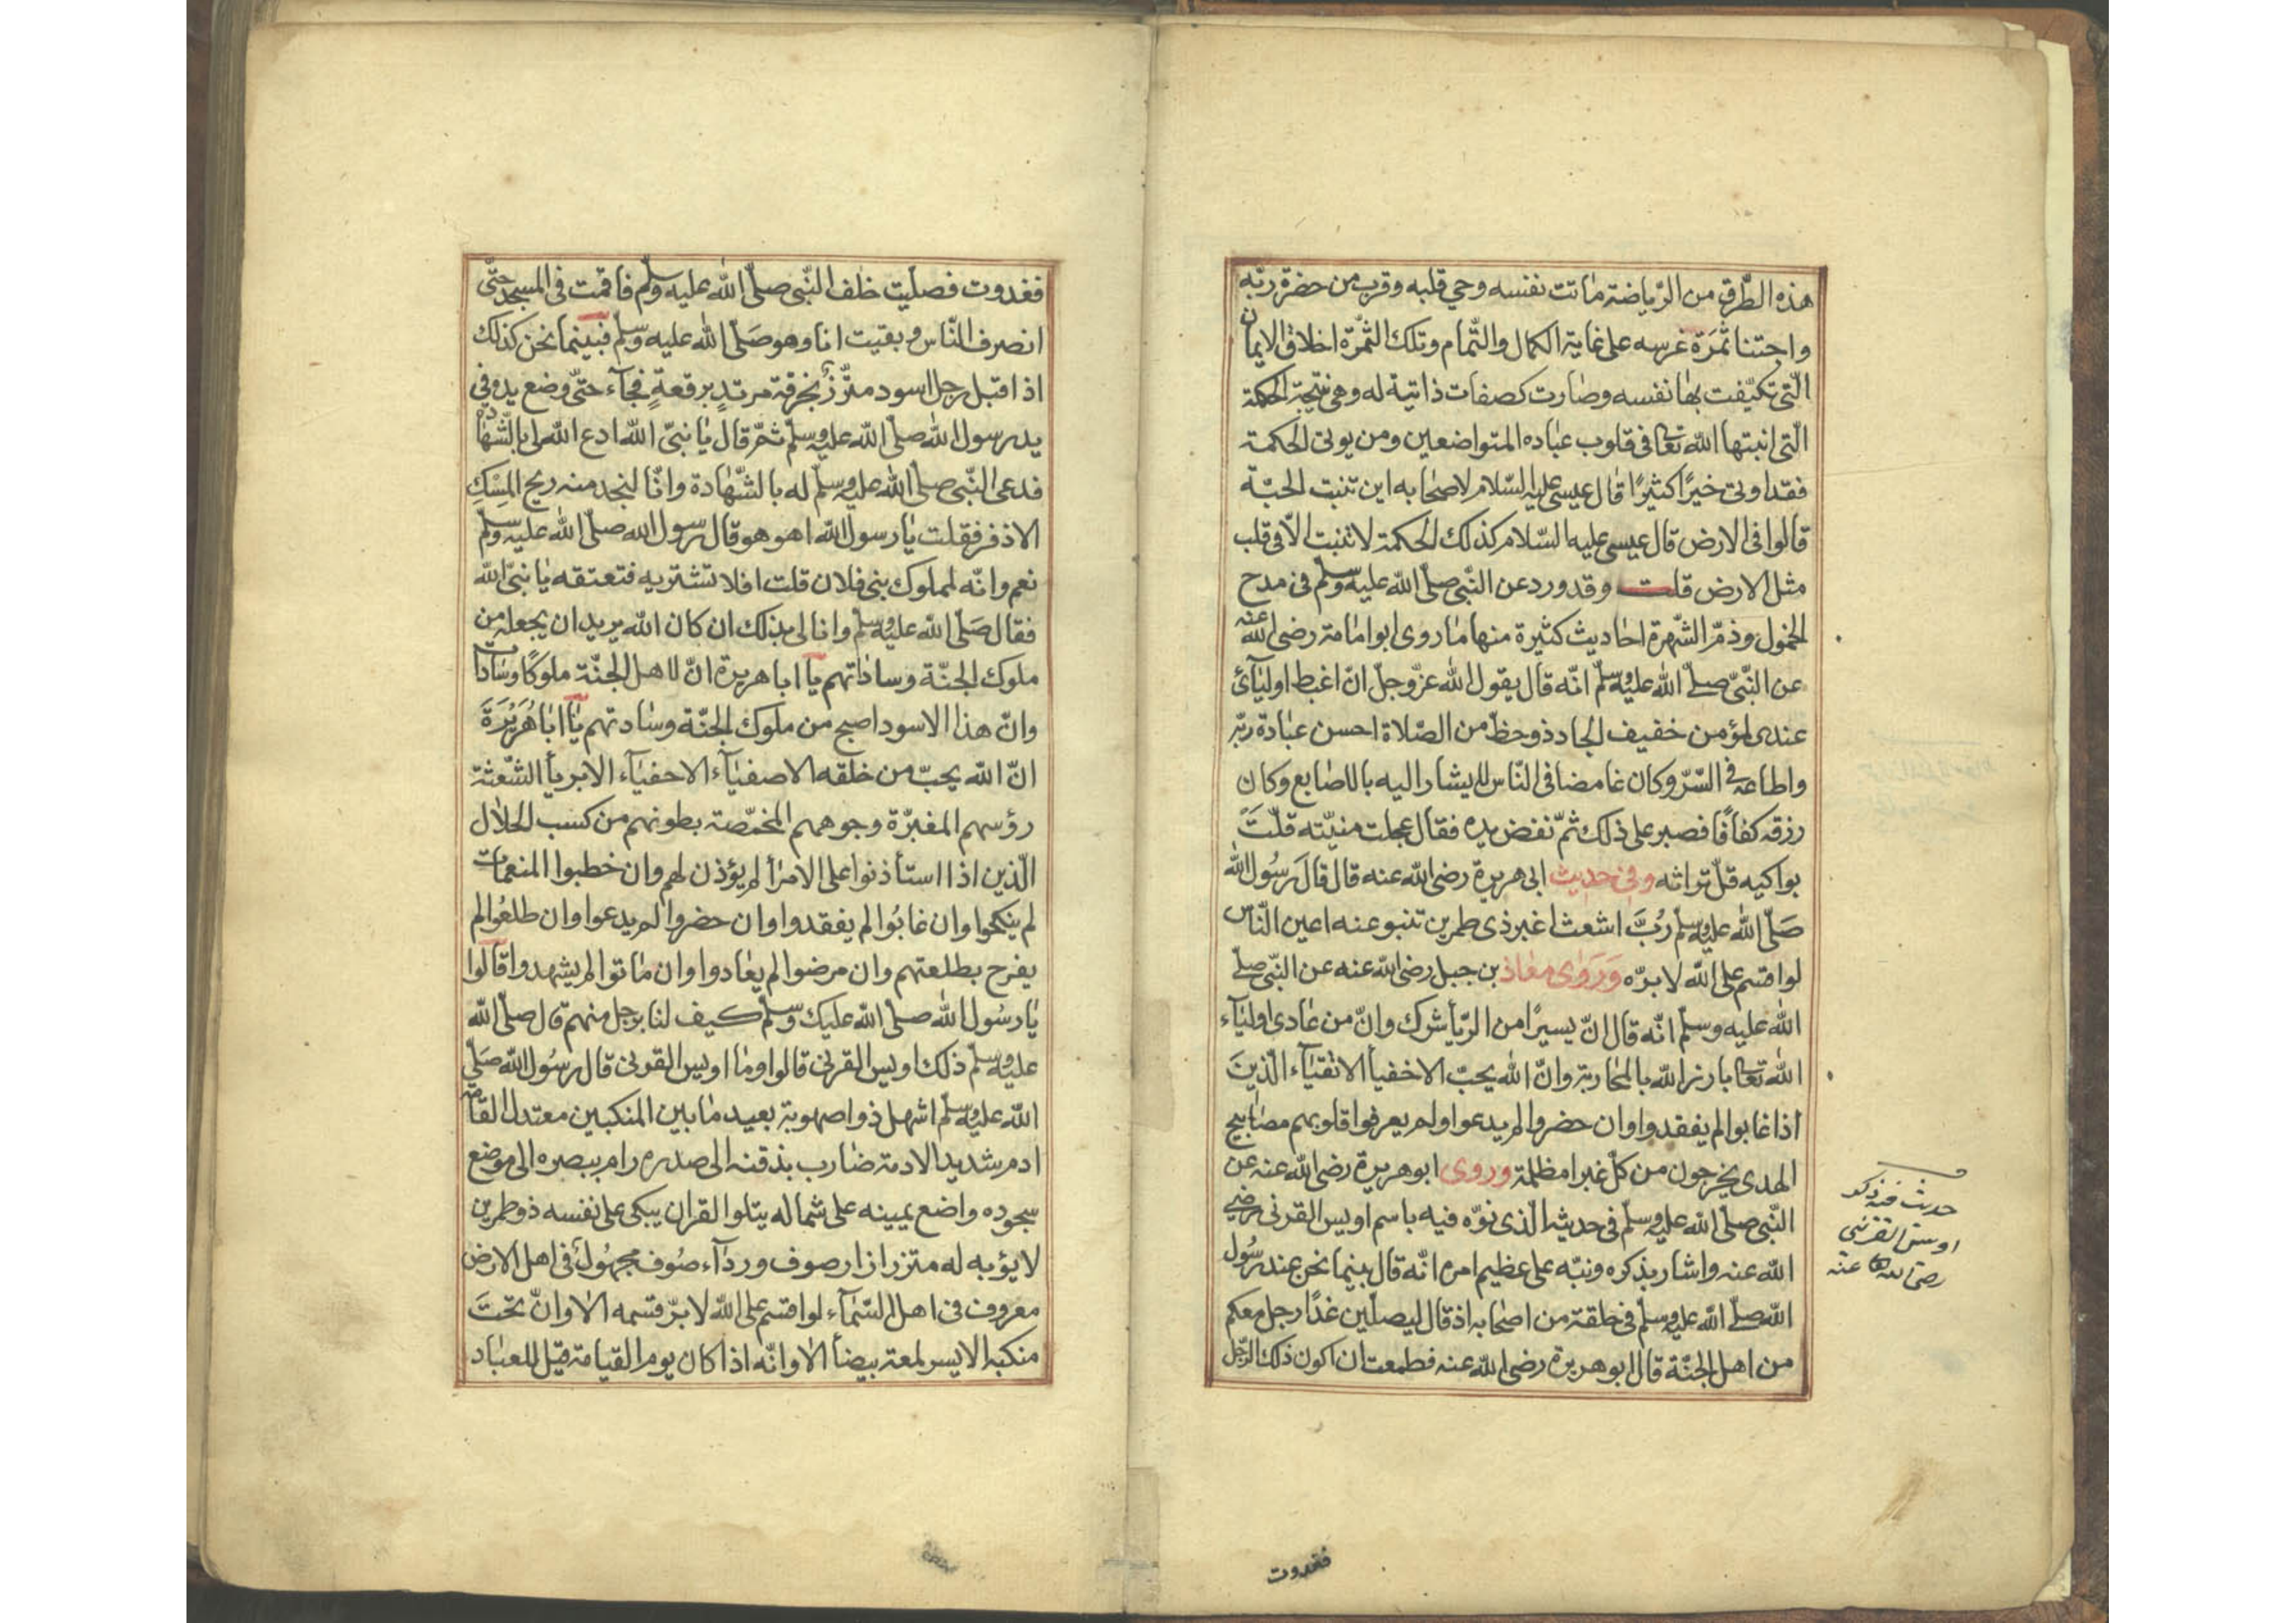 هذه الطرق من الرياضة ماتت نفسه وحي قلبه وقرب من حضرة ربه
واجتنا ثمرة غرسه على غاية الكمال والتمام وتلك الثمرة اخلاق الايمان
التى تكيفت بها نفسه وصارت كصفات ذاتية له وهى نتيجة الحكمة
التى انبتها الله تعا فى قلوب عباده المتواضعين ومن يوتى الحكمة
فقد اوتى خيرًا كثيرًا قال عيسى عليه السلام لاصحابه اين تنبت الحبة
قالوا فى الارض قال عيسى عليه السلام كذلك الحكمة لا تنبت الا فى قلب
مثل الارض قلت وقد ورد عن النبى صلى الله عليه وسلم فى مدح
الخمول وذم الشهرة احاديث كثيرة منها ما روى ابو امامة رضى الله عنه
عن النبى صلى الله عليه وسلم انه قال يقول الله عز وجل ان اغبط اوليائ
عندى لمؤمن خفيف الحاد ذو حظ من الصلاة احسن عبادة ربه
واطاعه فى السر وكان غامضا فى الناس لا يشار اليه بالاصابع وكان
رزقه كفافًا فصبر على ذلك ثم نفض يده فقال عجلت منيته قلت
بواكيه قل تراثه وفى حديث ابى هريرة رضى الله عنه قال قال رسول الله
صلى الله عليه وسلم رب اشعث اغبر ذى طمرين تنبو عنه اعين الناس
لو اقسم على الله لابره وروى معاذ بن جبل رضى الله عنه عن النبى صلى
الله عليه وسلم انه قال ان يسيرًا من الريأ شرك وان من عادى اولياء
الله تعا بارز الله بالمحاربة وان الله يحب الاخفيأ الاتقياء الذين
اذا غابوا لم يفقدوا وان حضروا لم يدعوا ولم يعرفوا قلوبهم مصابيح
الهدى يخرجون من كل غبرا مظلمة وروى ابو هريرة رضى الله عنه عن
النبى صلى الله عليه وسلم فى حديثه الذى نوه فيه باسم اويس القرنى رضي
الله عنه واشار بذكره ونبه على عظيم امره انه قال بينما نحن عند رسول
الله صلى الله عليه وسلم فى حلقة من اصحابه اذ قال ليصلين غدًا رجل معكم
من اهل الجنة قال ابو هريرة رضى الله عنه فطمعت ان اكون ذلك الرجل
حديث فيه ذكر
اويس القرنى
رضى الله عنه
فغدوت
فغدوت فصليت خلف النبى صلى الله عليه وسلم فاقمت فى المسجد حتى
انصرف الناس وبقيت انا وهو صلى الله عليه وسلم فبينما نحن كذلك
اذ اقبل رجل اسود متزر بخرقة مرتدٍ برقعةٍ فجآء حتى وضع يده في
يد رسول الله صلى الله عليه وسلم ثم قال يا نبى الله ادع الله لى بالشهادة
فدعى النبى صلى الله عليه وسلم له بالشهادة وانا لنجد منه ريح المسك
الاذفر فقلت يا رسول الله اهو هو قال رسول الله صلى الله عليه وسلم
نعم وانه لمملوك بنى فلان قلت افلا تشتريه فتعتقه يا نبى الله
فقال صلى الله عليه وسلم وانا لى بذلك ان كان الله يريد ان يجعله من
ملوك الجنة وساداتهم يا ابا هريرة ان لاهل الجنة ملوكًا وسادا
وان هذا الاسود اصبح من ملوك الجنة وسادتهم يا ابا هريرة
ان الله يحب من خلقه الاصفيآء الاحفيآء الابريأ الشعثة
رؤسهم المغبرة وجوههم المخمصة بطونهم من كسب الحلال
الذين اذا استأذنوا على الامرأ لم يؤذن لهم وان خطبوا المنعمات
لم ينكحوا وان غابوا لم يفقدوا وان حضروا لم يدعوا وان طلعوا لم
يفرح بطلعتهم وان مرضوا لم يعادوا وان ماتوا لم يشهدوا قالوا
يا رسول الله صلى الله عليك وسلم كيف لنا برجل منهم قال صلى الله
عليه وسلم ذلك اويس القرنى قالوا وما اويس القرنى قال رسول الله صلى
الله عليه وسلم اشهل ذو اصهوبة بعيد ما بين المنكبين معتدل القامة
ادم شديد الادمة ضارب بذقنه الى صدره رام ببصره الى موضع
سجوده واضع يمينه على شماله يتلوا القران يبكى على نفسه ذو طمرين
لا يؤبه له متزر ازار صوف وردآء صوف مجهول فى اهل الارض
معروف فى اهل السمآء لو اقسم على الله لابر قسمه الا وان تحت
منكبه الايسر لمعة بيضأ الا وانه اذا كان يوم القيامة قيل للعباد